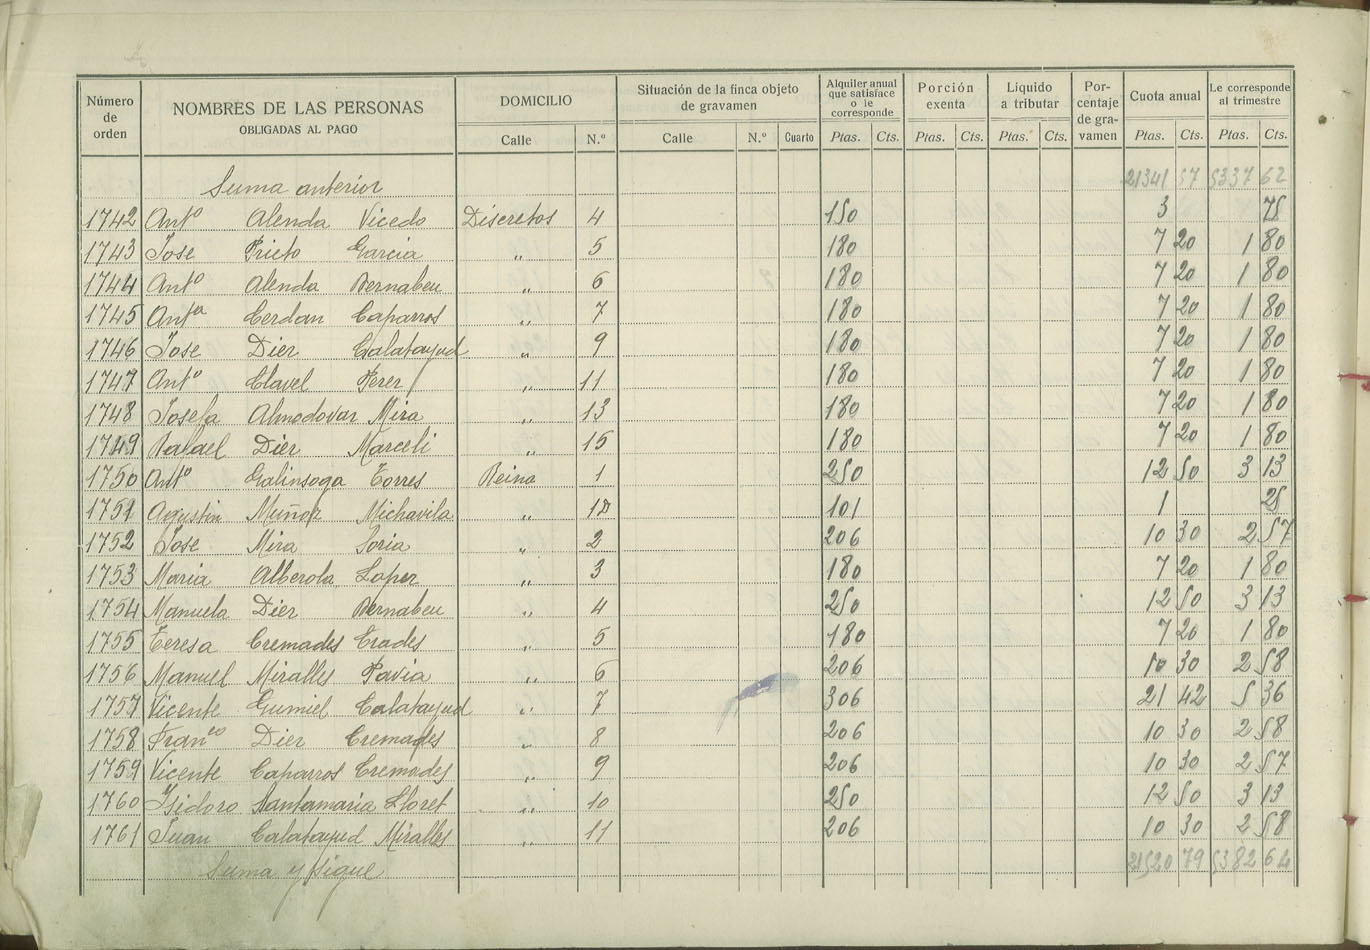 Número de orden | NOMBRES DE LAS PERSONAS OBLIGADAS AL PAGO | DOMICILIO | Situación de la finca objeto de gravamen | Alquiler anual que satisface o le corresponde | Porción exenta | Líquido a tributar | Porcentaje de gravamen | Cuota anual | Le corresponde al trimestre
Calle | N.º | Calle | N.º | Cuarto | Ptas. | Cts. | Ptas. | Cts. | Ptas. | Cts. | Ptas. | Cts. | Ptas. | Cts.
Suma anterior 21341 57 5337 62
1742 Antº Alenda Vicedo Discretos 4 150 3 75
1743 Jose Prieto Garcia " 5 180 7 20 1 80
1744 Antº Alenda Bernabeu " 6 180 7 20 1 80
1745 Antª Cerdan Caparros " 7 180 7 20 1 80
1746 Jose Dier Calatayud " 9 180 7 20 1 80
1747 Antº Clavel Perer " 11 180 7 20 1 80
1748 Josefa Almodovar Mira " 13 180 7 20 1 80
1749 Rafael Dier Marceli " 15 180 7 20 1 80
1750 Antº Galinsoga Torres Reina 1 250 12 50 3 13
1751 Agustin Muñoz Michavila " 101 1 25
1752 Jose Mira Soria " 2 206 10 30 2 57
1753 Maria Alberola Loper " 3 180 7 20 1 80
1754 Manuela Dier Bernabeu " 4 250 12 50 3 13
1755 Teresa Cremades Erades " 5 180 7 20 1 80
1756 Manuel Miralles Pavia " 6 206 10 30 2 58
1757 Vicente Gumiel Calatayud " 7 306 21 42 5 36
1758 Franco Dier Cremades " 8 206 10 30 2 58
1759 Vicente Caparros Cremades " 9 206 10 30 2 57
1760 Isidoro Santamaria Lloret " 10 250 12 50 3 13
1761 Juan Calatayud Miralles " 11 206 10 30 2 58
Suma y sigue 21520 79 5382 64